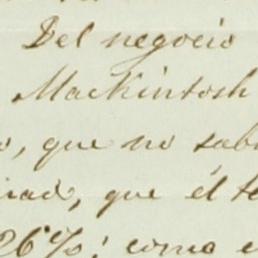 Del negocio
Mackintosh
o, que no sab
que él te
26%; como e